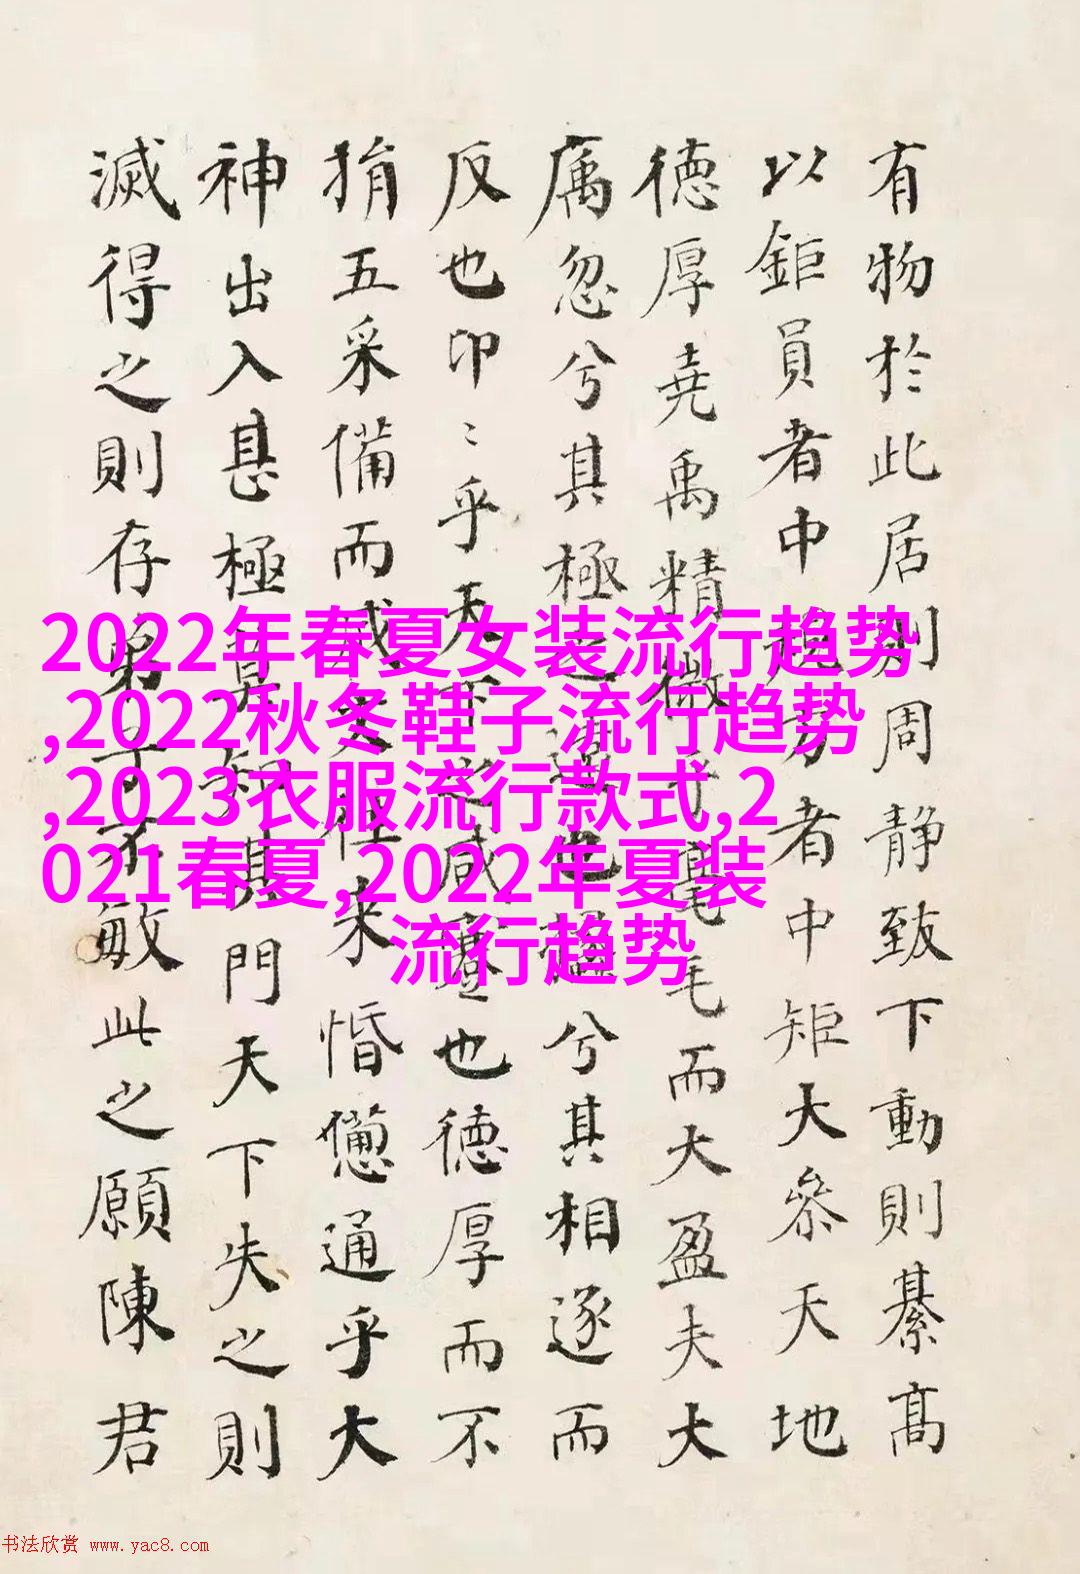 有物於此居則周静致下動則綦髙
以鉅員者中方者中矩大參天地
德厚堯禹精微乎毫毛而大盈夫大
厲忽兮其極之遠也兮其相逐而
反也卬〻乎天下之咸蹇也德厚而不
捐五采備而成文往来惛憊通乎大
神出入甚極莫知其門天下失之則
滅得之則存弟子不敏此之願陳君
2022年春夏女装流行趋势
,2022秋冬鞋子流行趋势
,2023衣服流行款式,2
021春夏,2022年夏装
流行趋势
书法欣赏 www.yac8.com